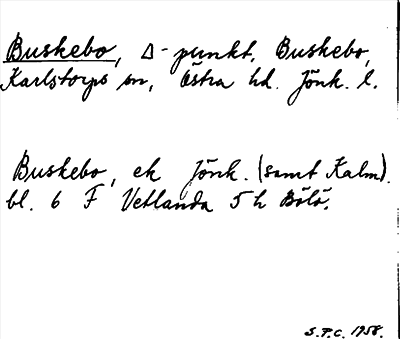 Buskebo, Δ-punkt, Buskebo,
Karlstorps sn, Östra hd. Jönk. l.
Buskebo, ek Jönk. (samt Kalm).
bl. 6 F Vetlanda 5 h Bölö.
S.P.C. 1958.